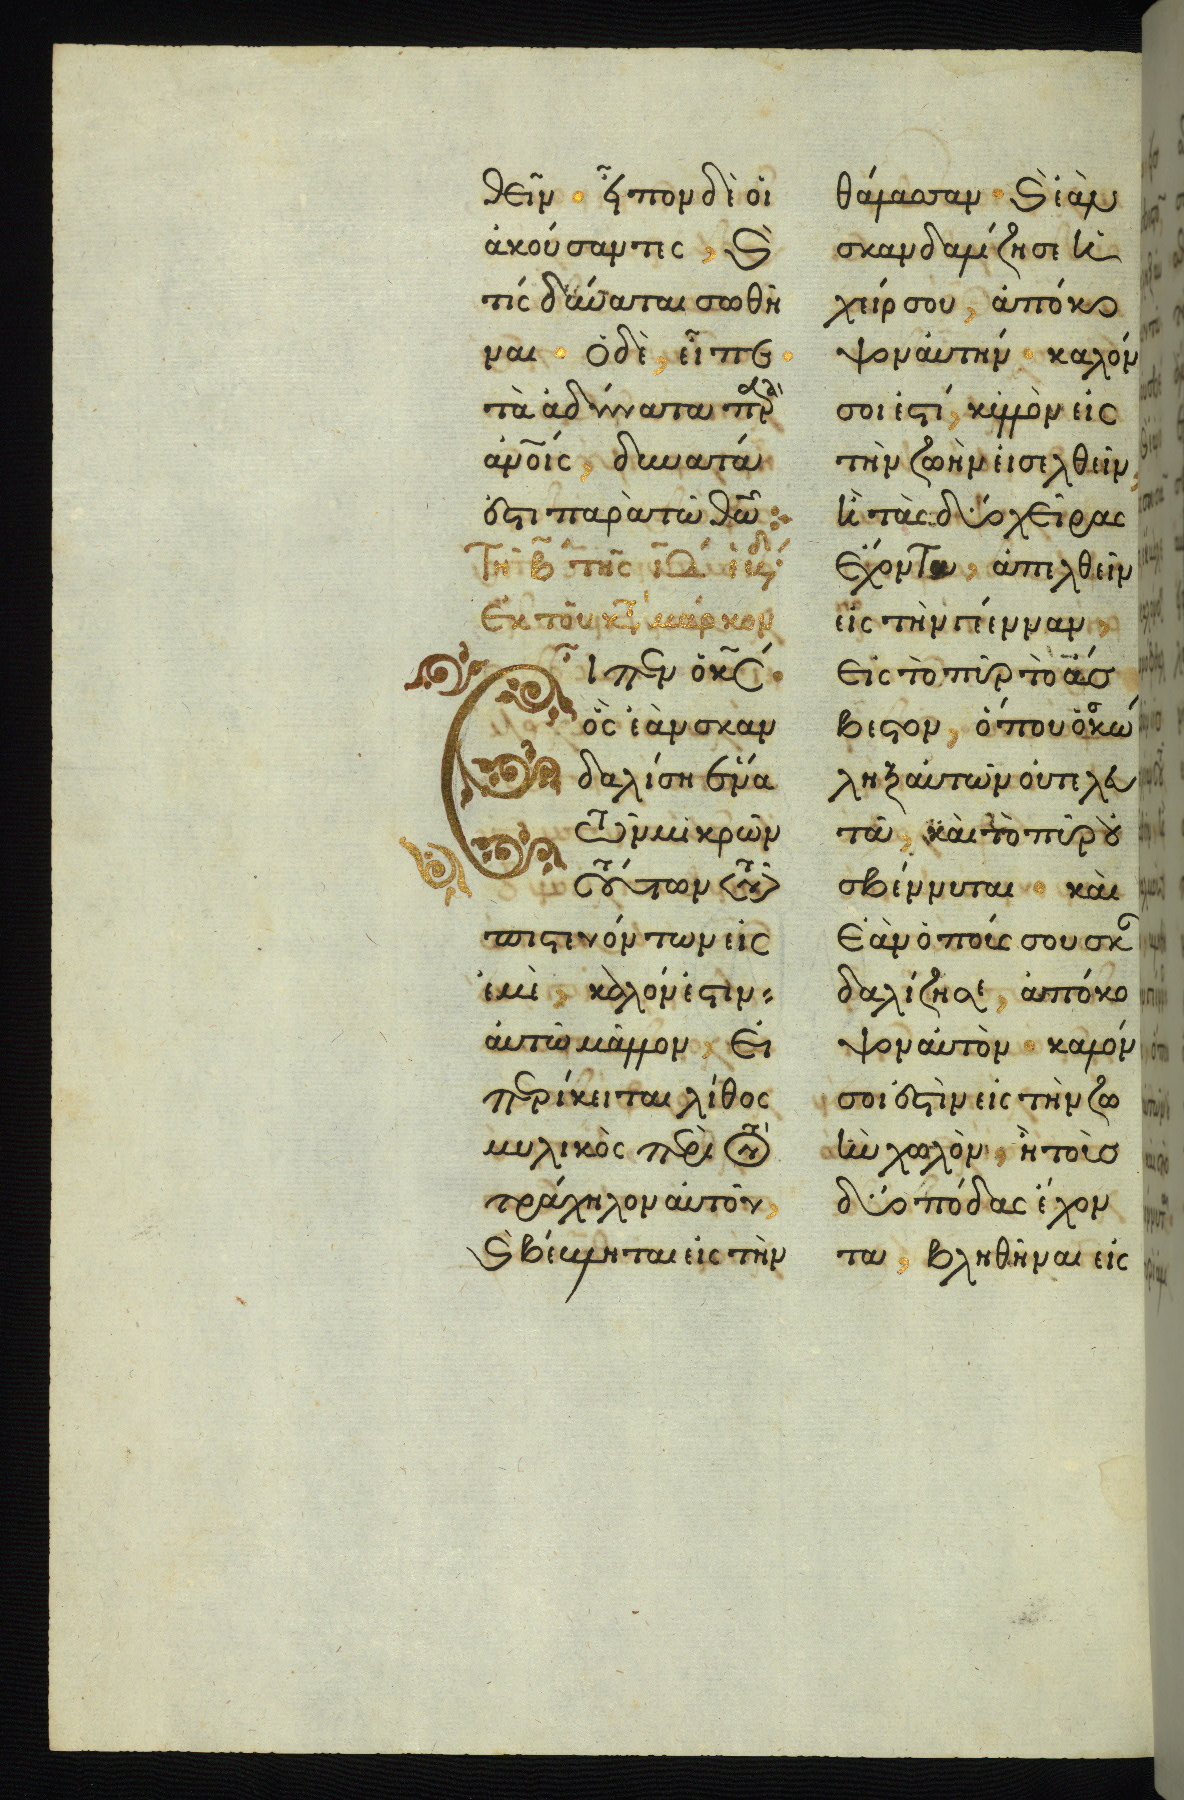 λθεῖν · εἶπον δὲ οἱ
ἀκούσαντες, καὶ
τίς δύναται σωθῆ
ναι · ὁ δὲ, εἶπε ·
τὰ ἀδύνατα παρὰ
ἀνοῖς, δυνατά
ἐστι παρὰ τῷ θῶ
Τῇ β τῆς
Ἐκ τοῦ κατὰ μάρκον
Εἶπεν ὁ κς ·
ὃς ἐὰν σκαν
δαλίσῃ ἕνα
τῶν μικρῶν
τούτων τῶν
πιστευόντων εἰς
ἐμὲ, καλόν ἐστιν
αὐτῷ μᾶλλον, εἰ
περίκειται λίθος
μυλικὸς περὶ τὸν
τράχηλον αὐτοῦ,
καὶ βέβληται εἰς τὴν
θάλασσαν · καὶ ἐὰν
σκανδαλίζῃ σε ἡ
χείρ σου, ἀπόκο
ψον αὐτήν · καλόν
σοι ἐστί, κυλλὸν εἰς
τὴν ζωὴν εἰσελθεῖν,
ἢ τὰς δύο χεῖρας
ἔχοντα, ἀπελθεῖν
εἰς τὴν γέενναν,
εἰς τὸ πῦρ τὸ ἄσ
βεστον, ὅπου ὁ σκώ
ληξ αὐτῶν οὐ τελευ
τᾶ, καὶ τὸ πῦρ οὐ
σβέννυται · καὶ
ἐὰν ὁ πούς σου σκαν
δαλίζῃ σε, ἀπόκο
ψον αὐτὸν · καλόν
σοι ἐστὶν εἰς τὴν ζω
ὴν χωλὸν, ἢ τοὺς
δύο πόδας ἔχον
τα, βληθῆναι εἰς